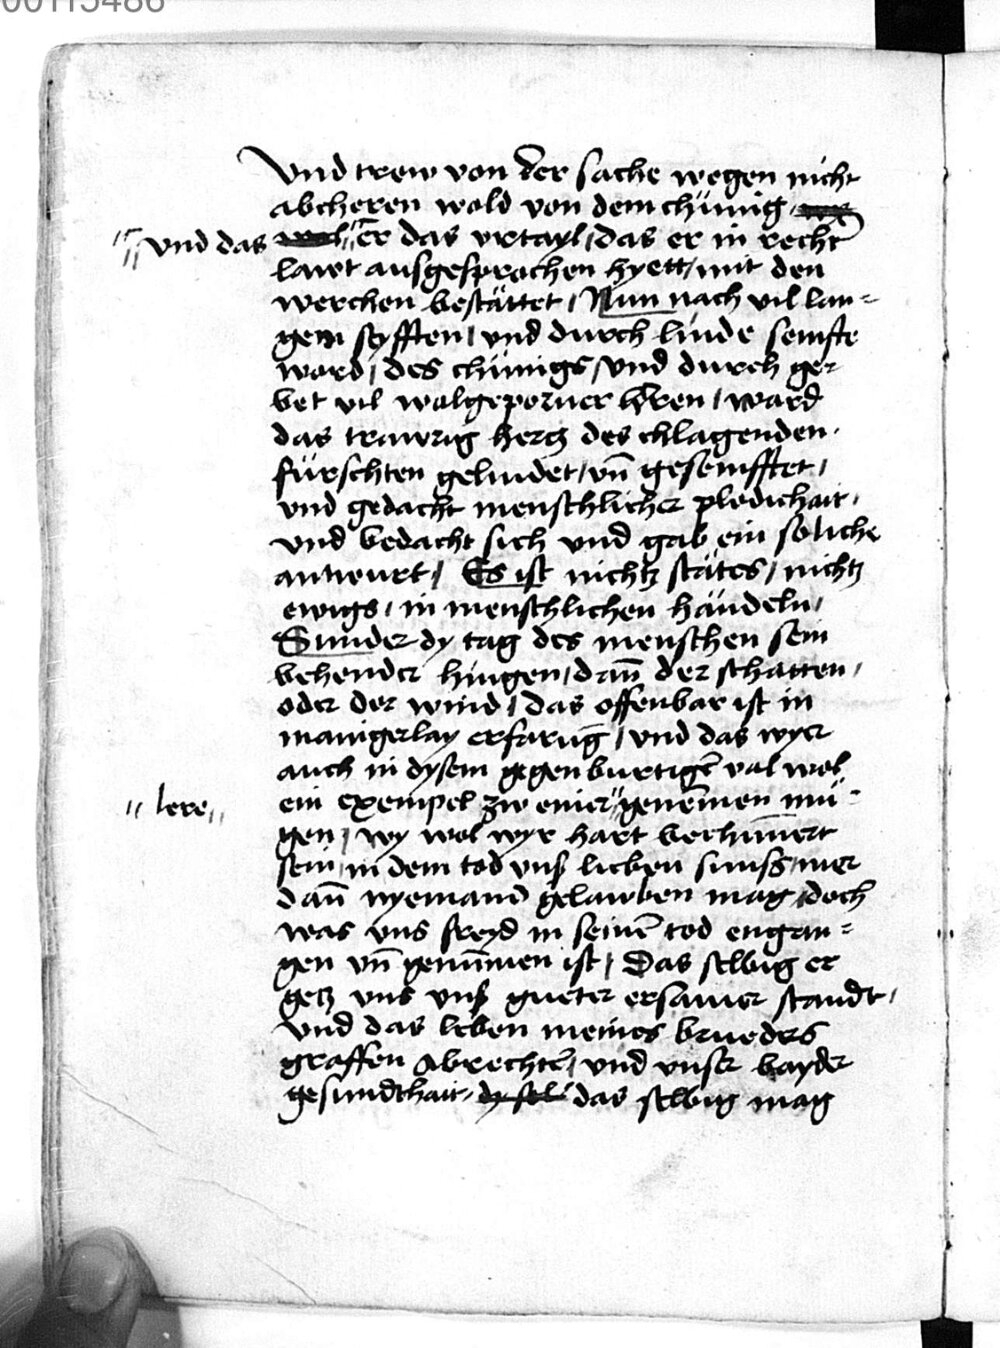 00115486
Und trew von der sache wegen nicht
abcheren wold von dem chünig /
vnd das er das vrtayl / das er in recht
lawt ausgesprochen hyett / mit den
werchen bestättet / Nun nach vil lan=
gem seyfften / vnd durch linde semfte
word / des chünigs / vnd durch ge=
bet vil wolgeporner h̄ren / ward
das trawrig hertz des chlagenden
fürschten gelindet / vn̄ gesemfftet /
vnd gedacht menschlicher plodichait /
vnd bedacht sich vnd gab ein soliche
antwurt / Es ist nichtz stätes / nichtz
ewigs / in menschlichen händeln /
Sunder dy tag des menschen sein
behender hingen / dan̄ der schatten /
oder der wind / das offenbar ist in
manigerlay erfarūg / vnd das wyer
auch in dysem gegenburtigē val wol
ein exempel zw einer genēmen mü=
" lere "
gen / wy wol wyr hart berhūmert
sein / in dem tod vnß lieben sunß / mer
dan̄ nyemand gelawben mag / doch
was vns freyd in seinē tod engan=
gen vn̄ genūmen ist / Das selbig er
getz vns vnß gueter ersamer standt /
vnd das leben meines brueders
graffen Abrechtē / vnd vnser bayder
gesundthait / dy sel das selbig mag